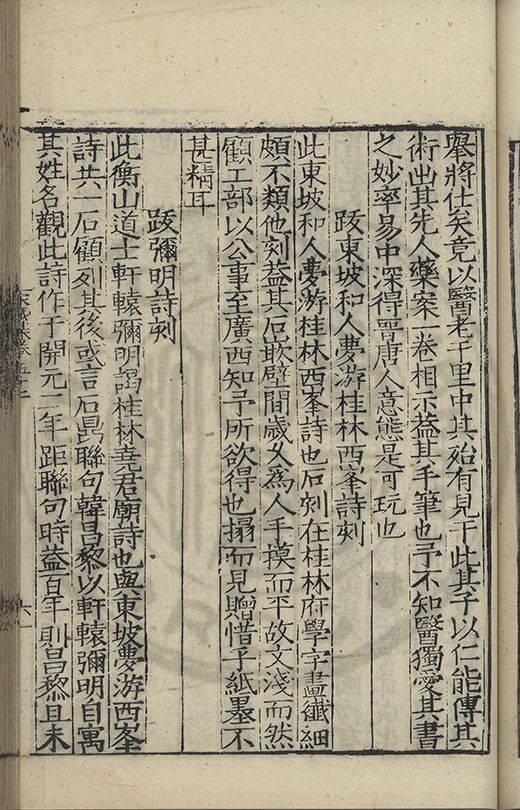 舉將仕矣竟以醫老于里中其殆有見于此其子以仁能傳其
術出其先人藥案一卷相示葢其手筆也予不知醫獨愛其書
之妙率易中深得晉唐人意態是可玩也
跋東坡和人夢游桂林西峯詩刻
此東坡和人夢游桂林西峯詩也石刻在桂林府學字畫纖細
頗不類他刻葢其石嵌壁間歲久為人手摸而平故文淺而然
顧工部以公事至廣西知予所欲得也搨而見贈惜予紙墨不
甚精耳
跋彌明詩刻
此衡山道士軒轅彌明謁桂林堯君廟詩也與東坡夢游西峯
詩共一石顧列其後或言石鼎聯句韓昌黎以軒轅彌明自寓
其姓名觀此詩作于開元二年距聯句時葢百年則昌黎且未